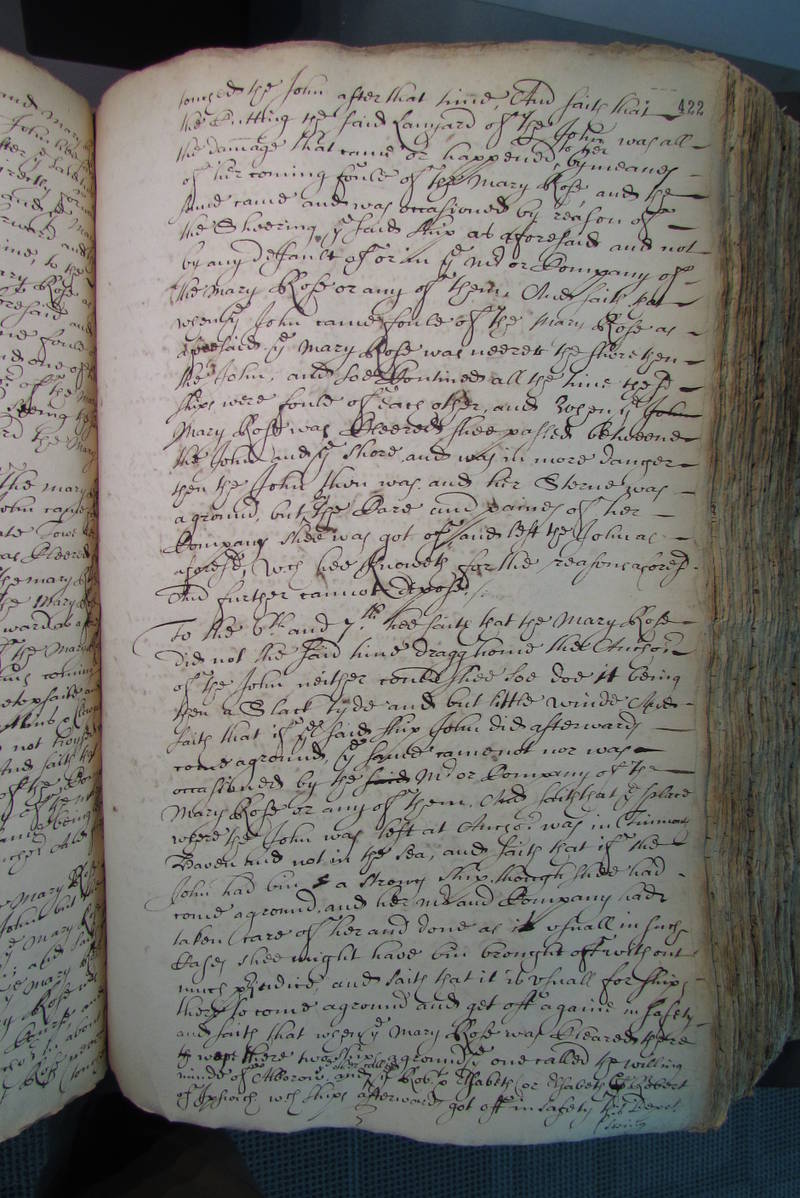 touched the John after that time, And saith that 422
the Cutting the said Lanyard of the John was all
the dammage that came or happened to her by meanes
of her coming foule of the Mary Rose, and the
same came and was occasioned by reason of
the Sheering ye said ship as aforesaid and not
by any default of or in ye Mr or Company of
the Mary Rose or any of them. And saith that
when ye John came foule of the Mary Rose as
aforesaid ye Mary Rose was neerer the shore then
the John, and soe Continued all the time the sd
ships were foule of each other, and when ye John
Mary Rose was Cleered shee passed betweene
the John and ye shore and was in more danger
then the John then was and her Sterne was
aground, but by the Care and paines of her
Company shee was got off and left the John as
aforesd, wch hee knoweth for the reasons aforesd.
And further cannot depose./.
To the 6th and 7th hee saith that the Mary Rose
did not the said time dragg home the Anchor
of the John neither could shee soe doe it being
then a Slack tyde and but little winde And
saith that if ye said ship John did afterwards
come aground, ye same came not nor was
occasioned by the said Mr or Company of the
Mary Rose or any of them. And saith that ye place
where the John was left at Anchor was in
Haven and not in the sea, and saith that if the
John had bin a strong ship, though shee had
come aground, and her Mr and Company had
taken care of her and done as is usuall in such
Cases shee might have bin brought off without
much prejudice, and saith that it is usuall for ships
there to come aground and get off againe in safety
and saith that when ye Mary Rose was Cleared there
were there two ships aground, ye one called the willing
minde of and ye other called Elizabeth or Elizabeth
of Ipswich wch ships afterwards got off in safety